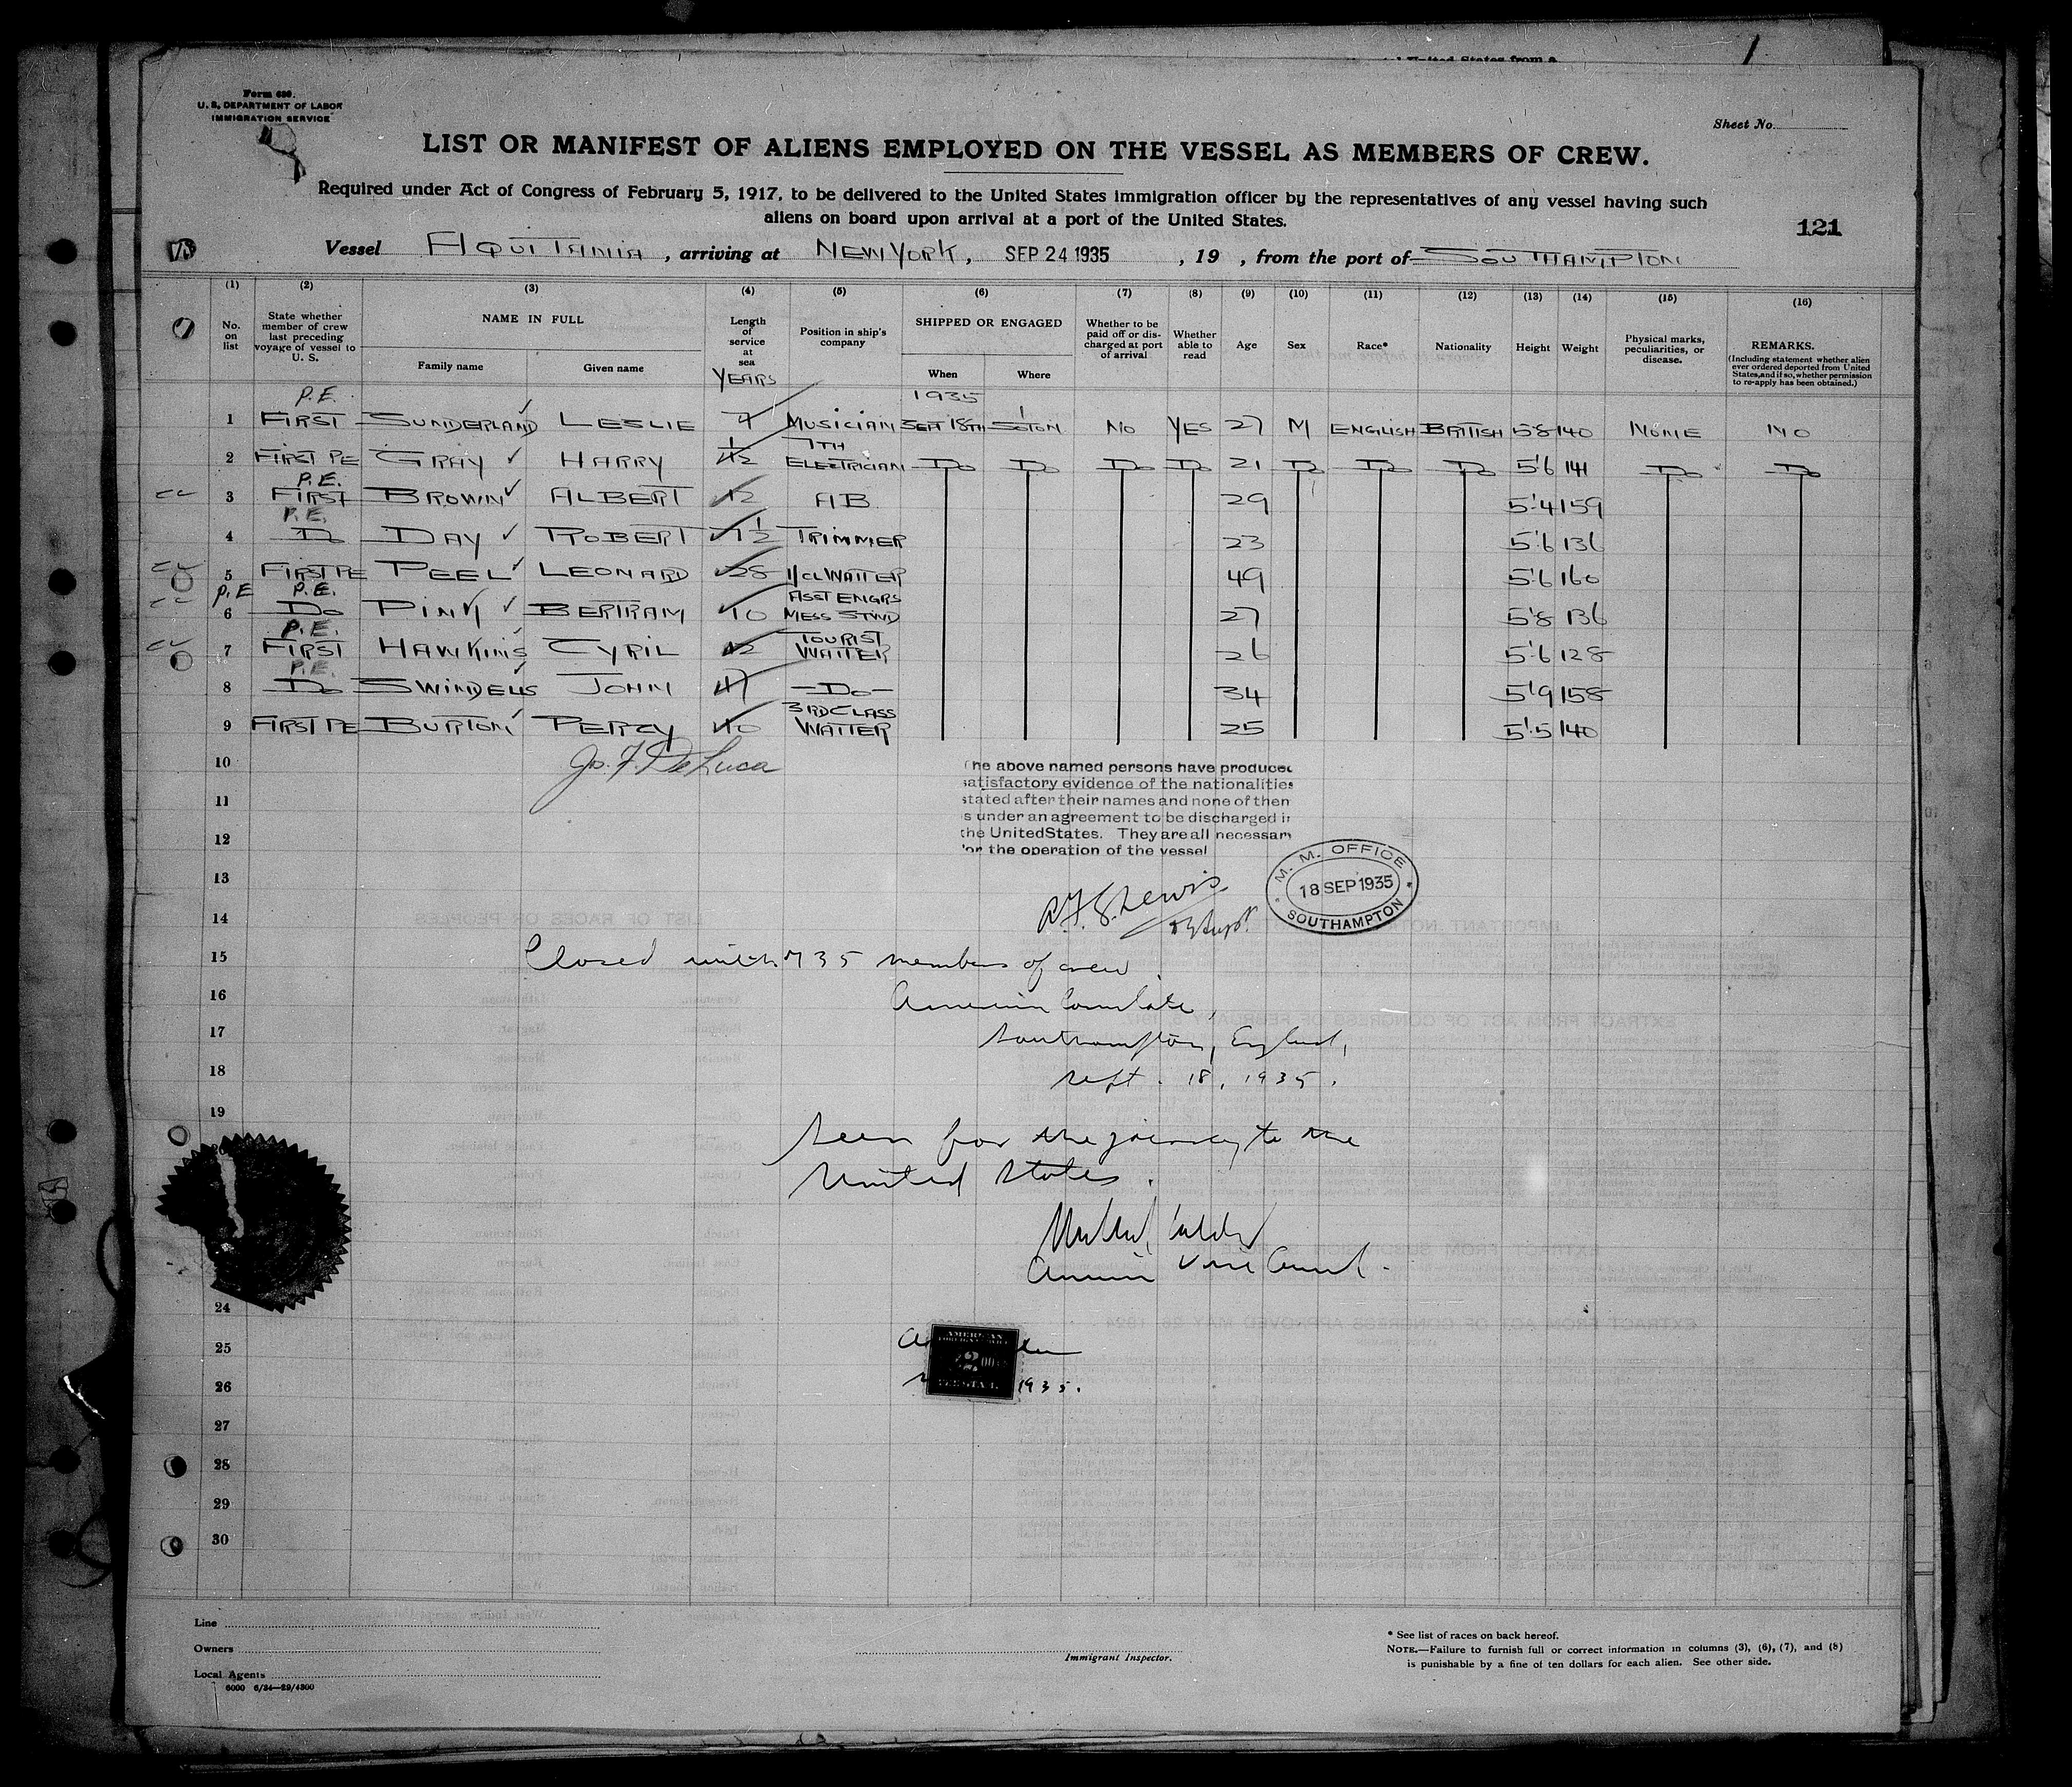 Form 680.
U. S. DEPARTMENT OF LABOR
IMMIGRATION SERVICE
Sheet No.
LIST OR MANIFEST OF ALIENS EMPLOYED ON THE VESSEL AS MEMBERS OF CREW.
Required under Act of Congress of February 5, 1917, to be delivered to the United States immigration officer by the representatives of any vessel having such
aliens on board upon arrival at a port of the United States.
121
Vessel AQUITANIA, arriving at NEW YORK, SEP 24 1935, 19 , from the port of SOUTHAMPTON
(1) (2) (3) (4) (5) (6) (7) (8) (9) (10) (11) (12) (13) (14) (15) (16)
No. on list State whether member of crew last preceding voyage of vessel to U. S. NAME IN FULL Family name Given name Length of service at sea YEARS Position in ship's company SHIPPED OR ENGAGED When Where Whether to be paid off or discharged at port of arrival Whether able to read Age Sex Race* Nationality Height Weight Physical marks, peculiarities, or disease. REMARKS. (Including statement whether alien ever ordered deported from United States, and if so, whether permission to re-apply has been obtained.)
P.E. 1935
1 FIRST SUNDERLAND LESLIE MUSICIAN SEPT 18TH SOTON NO YES 27 M ENGLISH BRITISH 5'8 140 NONE NO
2 FIRST PE GRAY HARRY 7TH ELECTRICIAN Do Do Do Do 21 Do Do Do 5'6 141 Do Do
P.E.
3 FIRST BROWN ALBERT 12 AB 29 5'4 159
P.E.
4 Do DAY ROBERT 1½ TRIMMER 23 5'6 136
5 FIRST PE PEEL LEONARD 28 1/CL WAITER 49 5'6 160
P.E. P.E.
6 Do PINK BERTRAM 10 ASST ENGRS MESS STWD 27 5'8 136
P.E.
7 FIRST HAWKINS CYRIL TOURIST WAITER 26 5'6 128
P.E.
8 Do SWINDELLS JOHN —Do— 34 5'9 158
9 FIRST PE BURTON PERCY 10 3RD CLASS WAITER 25 5'5 140
10 Jo. F. DeLuca
The above named persons have produced
satisfactory evidence of the nationalities
11
stated after their names and none of them
is under an agreement to be discharged in
12
the United States. They are all necessary
for the operation of the vessel
13
M. M. OFFICE
18 SEP 1935
SOUTHAMPTON
14 Lewis
15 Closed with 735 members of crew.
16 American Consulate,
17 Southampton, England,
18 Sept. 18, 1935.
19
Seen for the journey to the
United States.
American Vice Consul.
24
25
AMERICAN
FOREIGN SERVICE
$2.00
26 1935.
27
28
29
30
Line
Owners
Local Agents
6000 6/34—29/4300
Immigrant Inspector.
* See list of races on back hereof.
NOTE.—Failure to furnish full or correct information in columns (3), (6), (7), and (8)
is punishable by a fine of ten dollars for each alien. See other side.